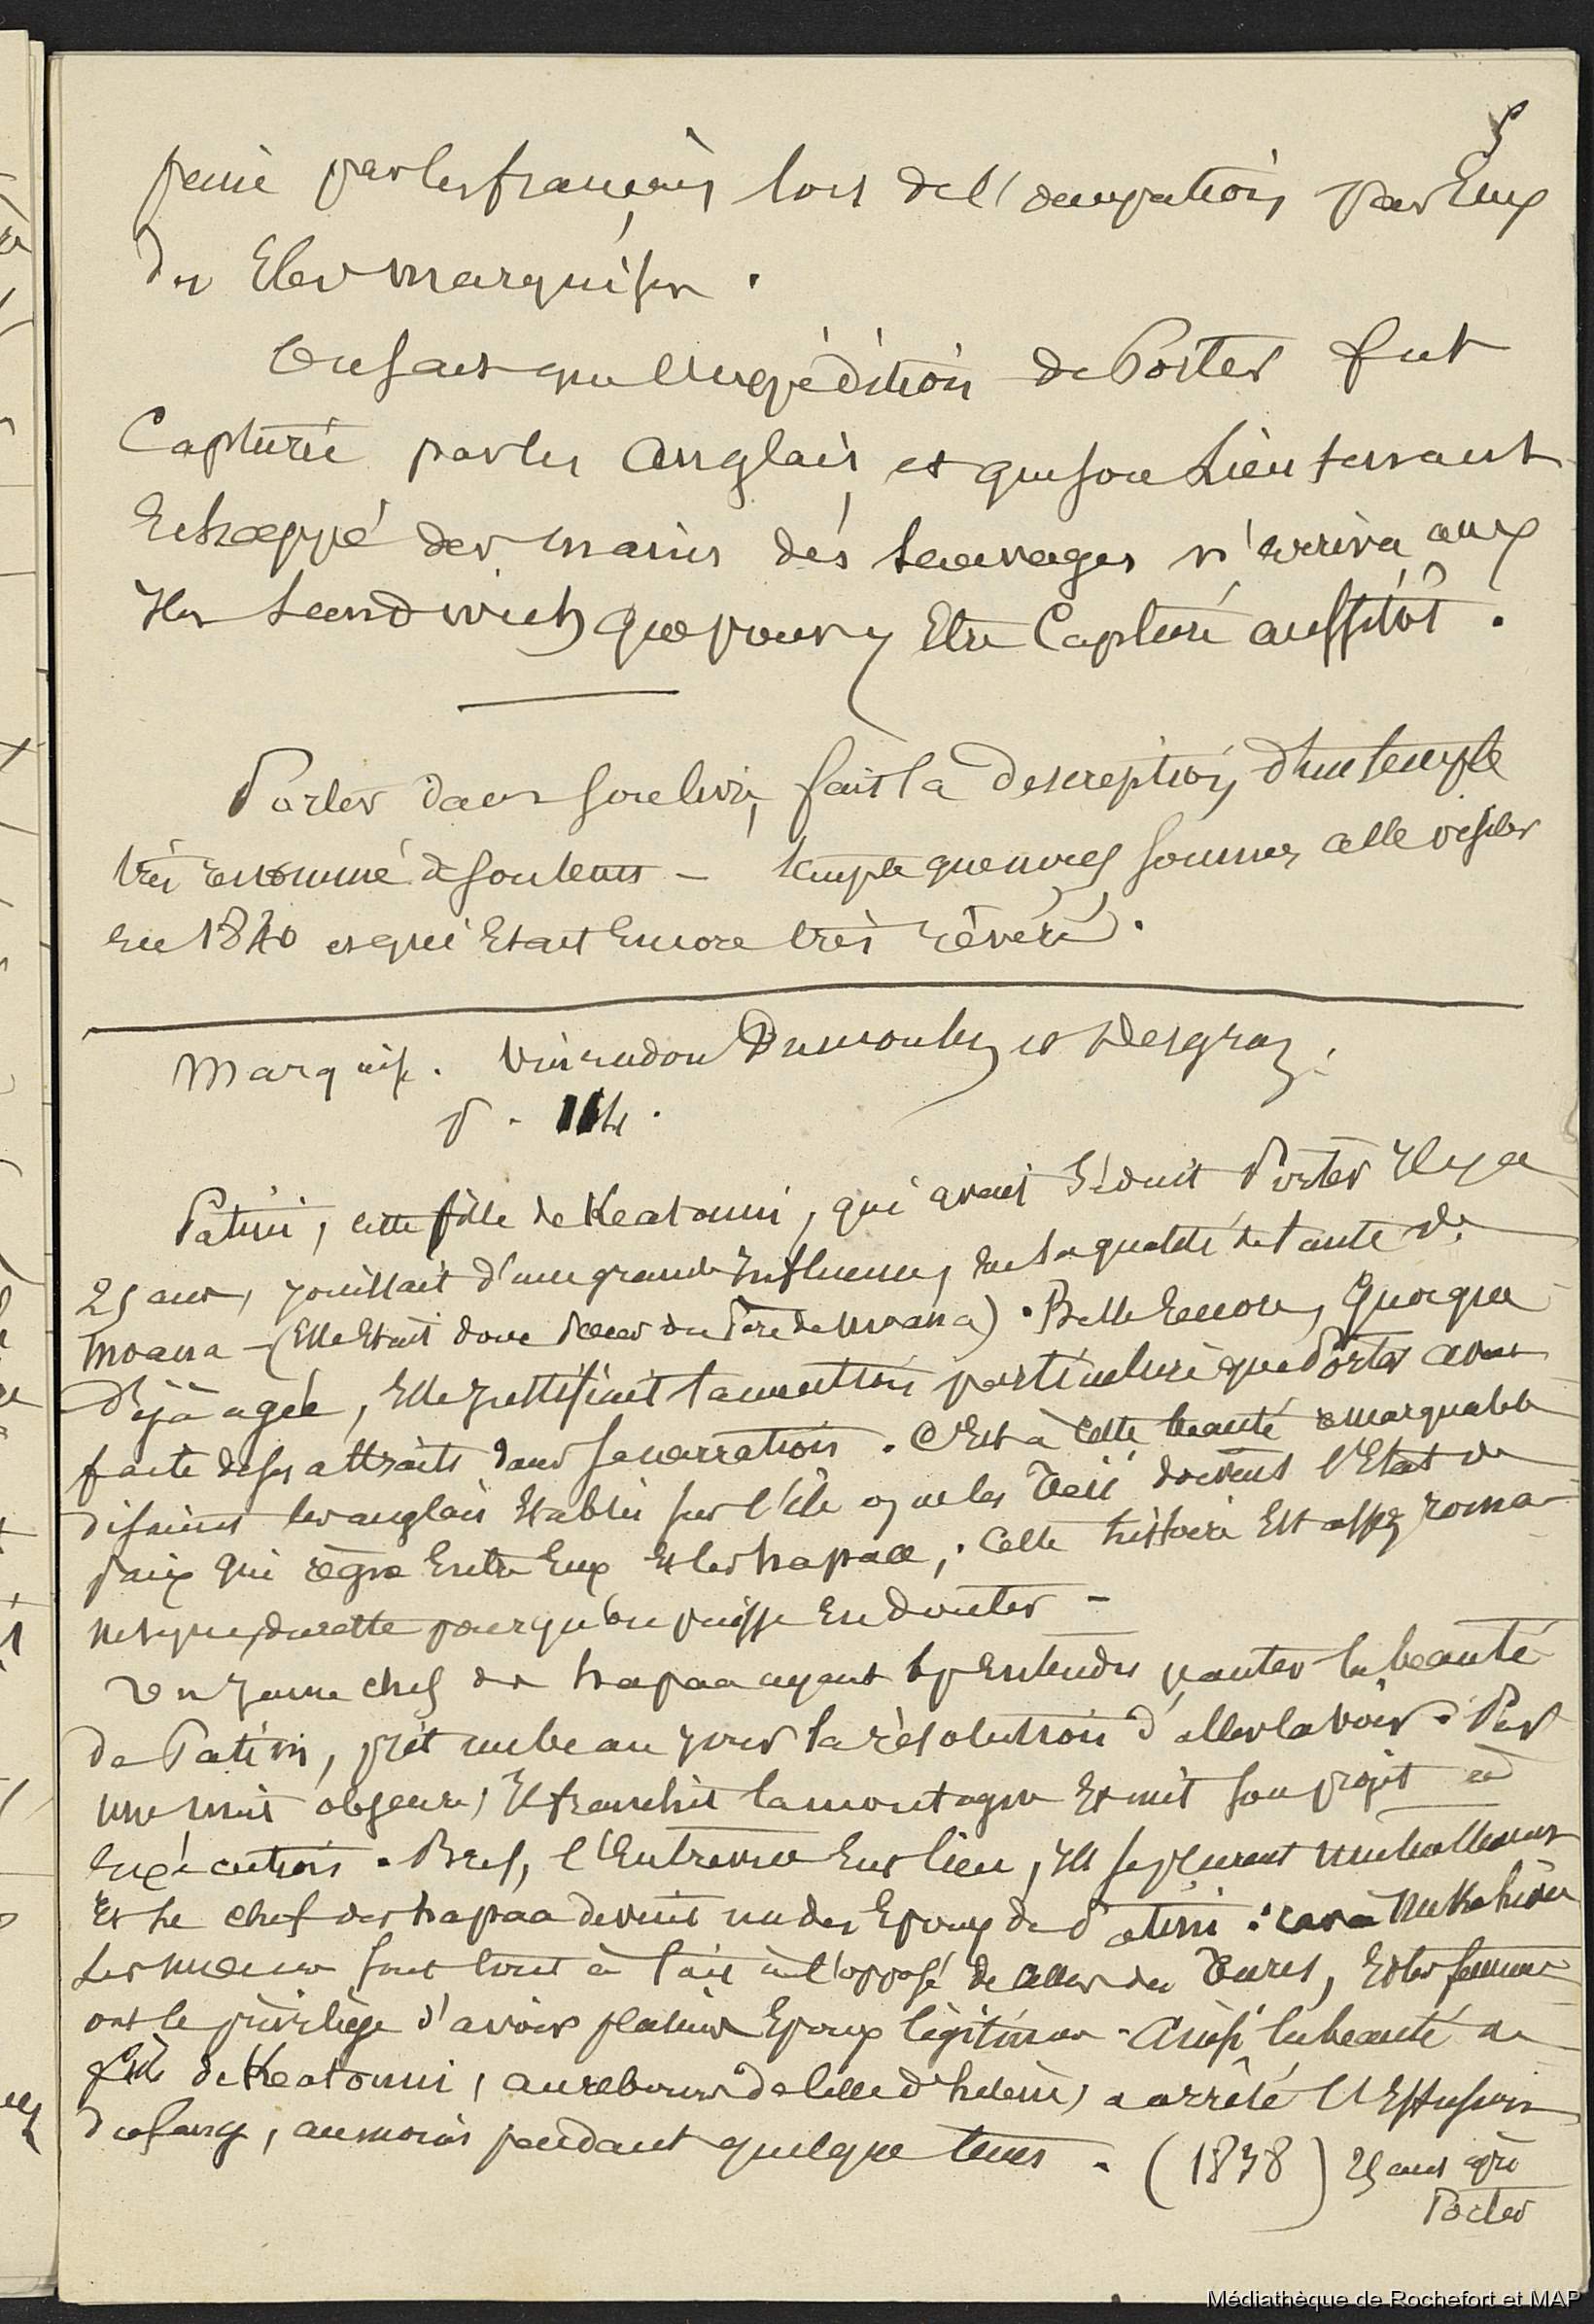 5
peiné par les français lors de l'occupation par Eux
des Iles marquises.
On sait que l'Expédition de Porter fut
Capturée par les anglais et que son Lieutenant
Echappé des mains dés sauvages n'arriva aux
Iles Sandwich que pour y Etre Capturé aussitôt.
Porter dans son livre, fait la description d'un temple
très renommé de son tems - temple que nous sommes allé visiter
en 1840 et qui Etait Encore très révéré.
Marquis. Vincendon Dumoulin et Desgraz.
P. 114.
Patini, cette fille de Keatonui, qui avait séduit Porter Il y a
25 ans, jouissait d'une grande Influence, en sa qualité de tante de
Moana - (Elle Etait donc soeur du Père de Moana). Belle Encore, quoique
déjà agée, Elle justifiait la mention particulière que Porter avait
faite de ses attraits dans sa narration. C'Est à cette beauté remarquable
disaient les anglais Etablis sur l'ile que les Taii doivent l'Etat de
paix qui règne Entre Eux et les hapaa; Cette histoire Est assez roma-
nesque, du reste pour qu'on puisse En douter -
Un jeune chef des hapaa ayant Entendu vanter la beauté
de Patini, prit un beau jour la résolution d'aller la voir. Par
une nuit obscure, Il franchit la montagne Et mit son projet à
Exécution. Bref, l'Entrevue Eut lieu, Ils se plurent mutuellement
Et le chef des hapaa devint un des Epoux de Patini : car à Nukahiva
Les moeurs sont tout à fait à l'opposé de celles des Turcs, Et les femmes
ont le privilège d'avoir plusieurs Epoux légitimes. Ainsi la beauté de
fille de Keatonui, au rebours de celle d'hélène, a arrêté l'Effusion
du sang, au moins pendant quelque tems. (1838) 25 ans après
Porter
Médiathèque de Rochefort et MAP